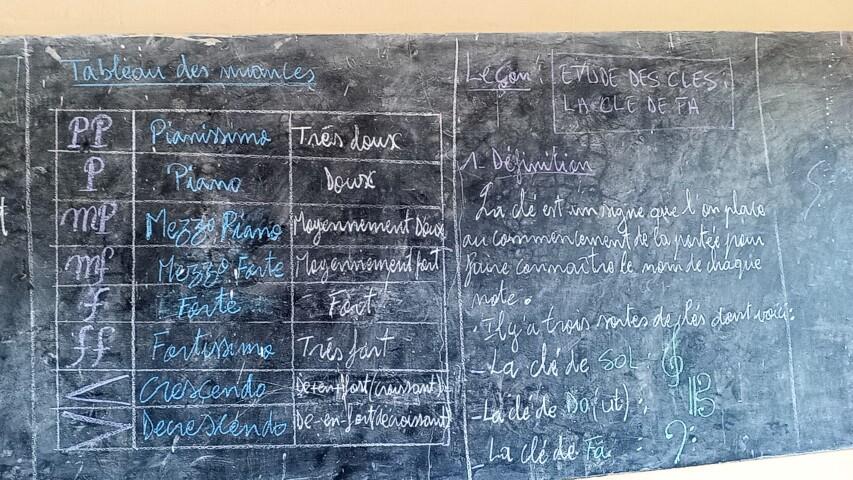 Tableau des nuances
PP Pianissimo Très doux
P Piano Doux
mp Mezzo Piano Moyennement Doux
mf Mezzo Forte Moyennement fort
f Forte Fort
ff Fortissimo Très fort
Crescendo De-en-fort(croissant)
Decrescendo De-en-fort décroissant
Leçon : ETUDE DES CLES :
LA CLE DE FA
1. Définition
La clé est un signe que l'on place
au commencement de la portée pour
faire connaître le nom de chaque
note.
. Il y'a trois sortes de clés dont voici:
- La clé de SOL :
- La clé de Do (ut) :
- La clé de Fa :